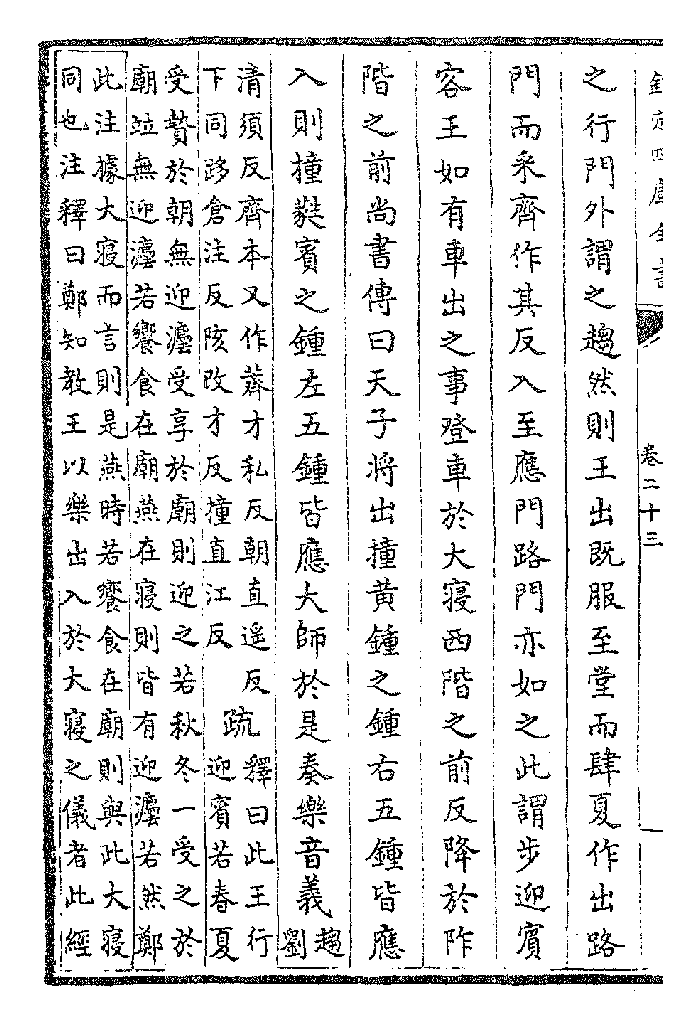 欽定四庫全書
卷二十三
之行門外謂之趨然則王出既服至堂而肆夏作出路
門而采齊作其反入至應門路門亦如之此謂步迎賓
客王如有車出之事登車於大寢西階之前反降於阼
階之前尚書傳曰天子將出撞黄鍾之鍾右五鍾皆應
入則撞蕤賓之鍾左五鍾皆應大師於是奏樂音義趨劉
清須反齊本又作薺才私反朝直遥反
下同跢倉注反陔改才反撞直江反
疏
釋曰此王行
迎賓若春夏
受贄於朝無迎灋受享於廟則迎之若秋冬一受之於
廟竝無迎灋若饗食在廟燕在寢則皆有迎灋若然鄭
此注據大寢而言則是燕時若饗食在廟則與此大寢
同也注釋曰鄭知教王以樂出入於大寢之儀者此經